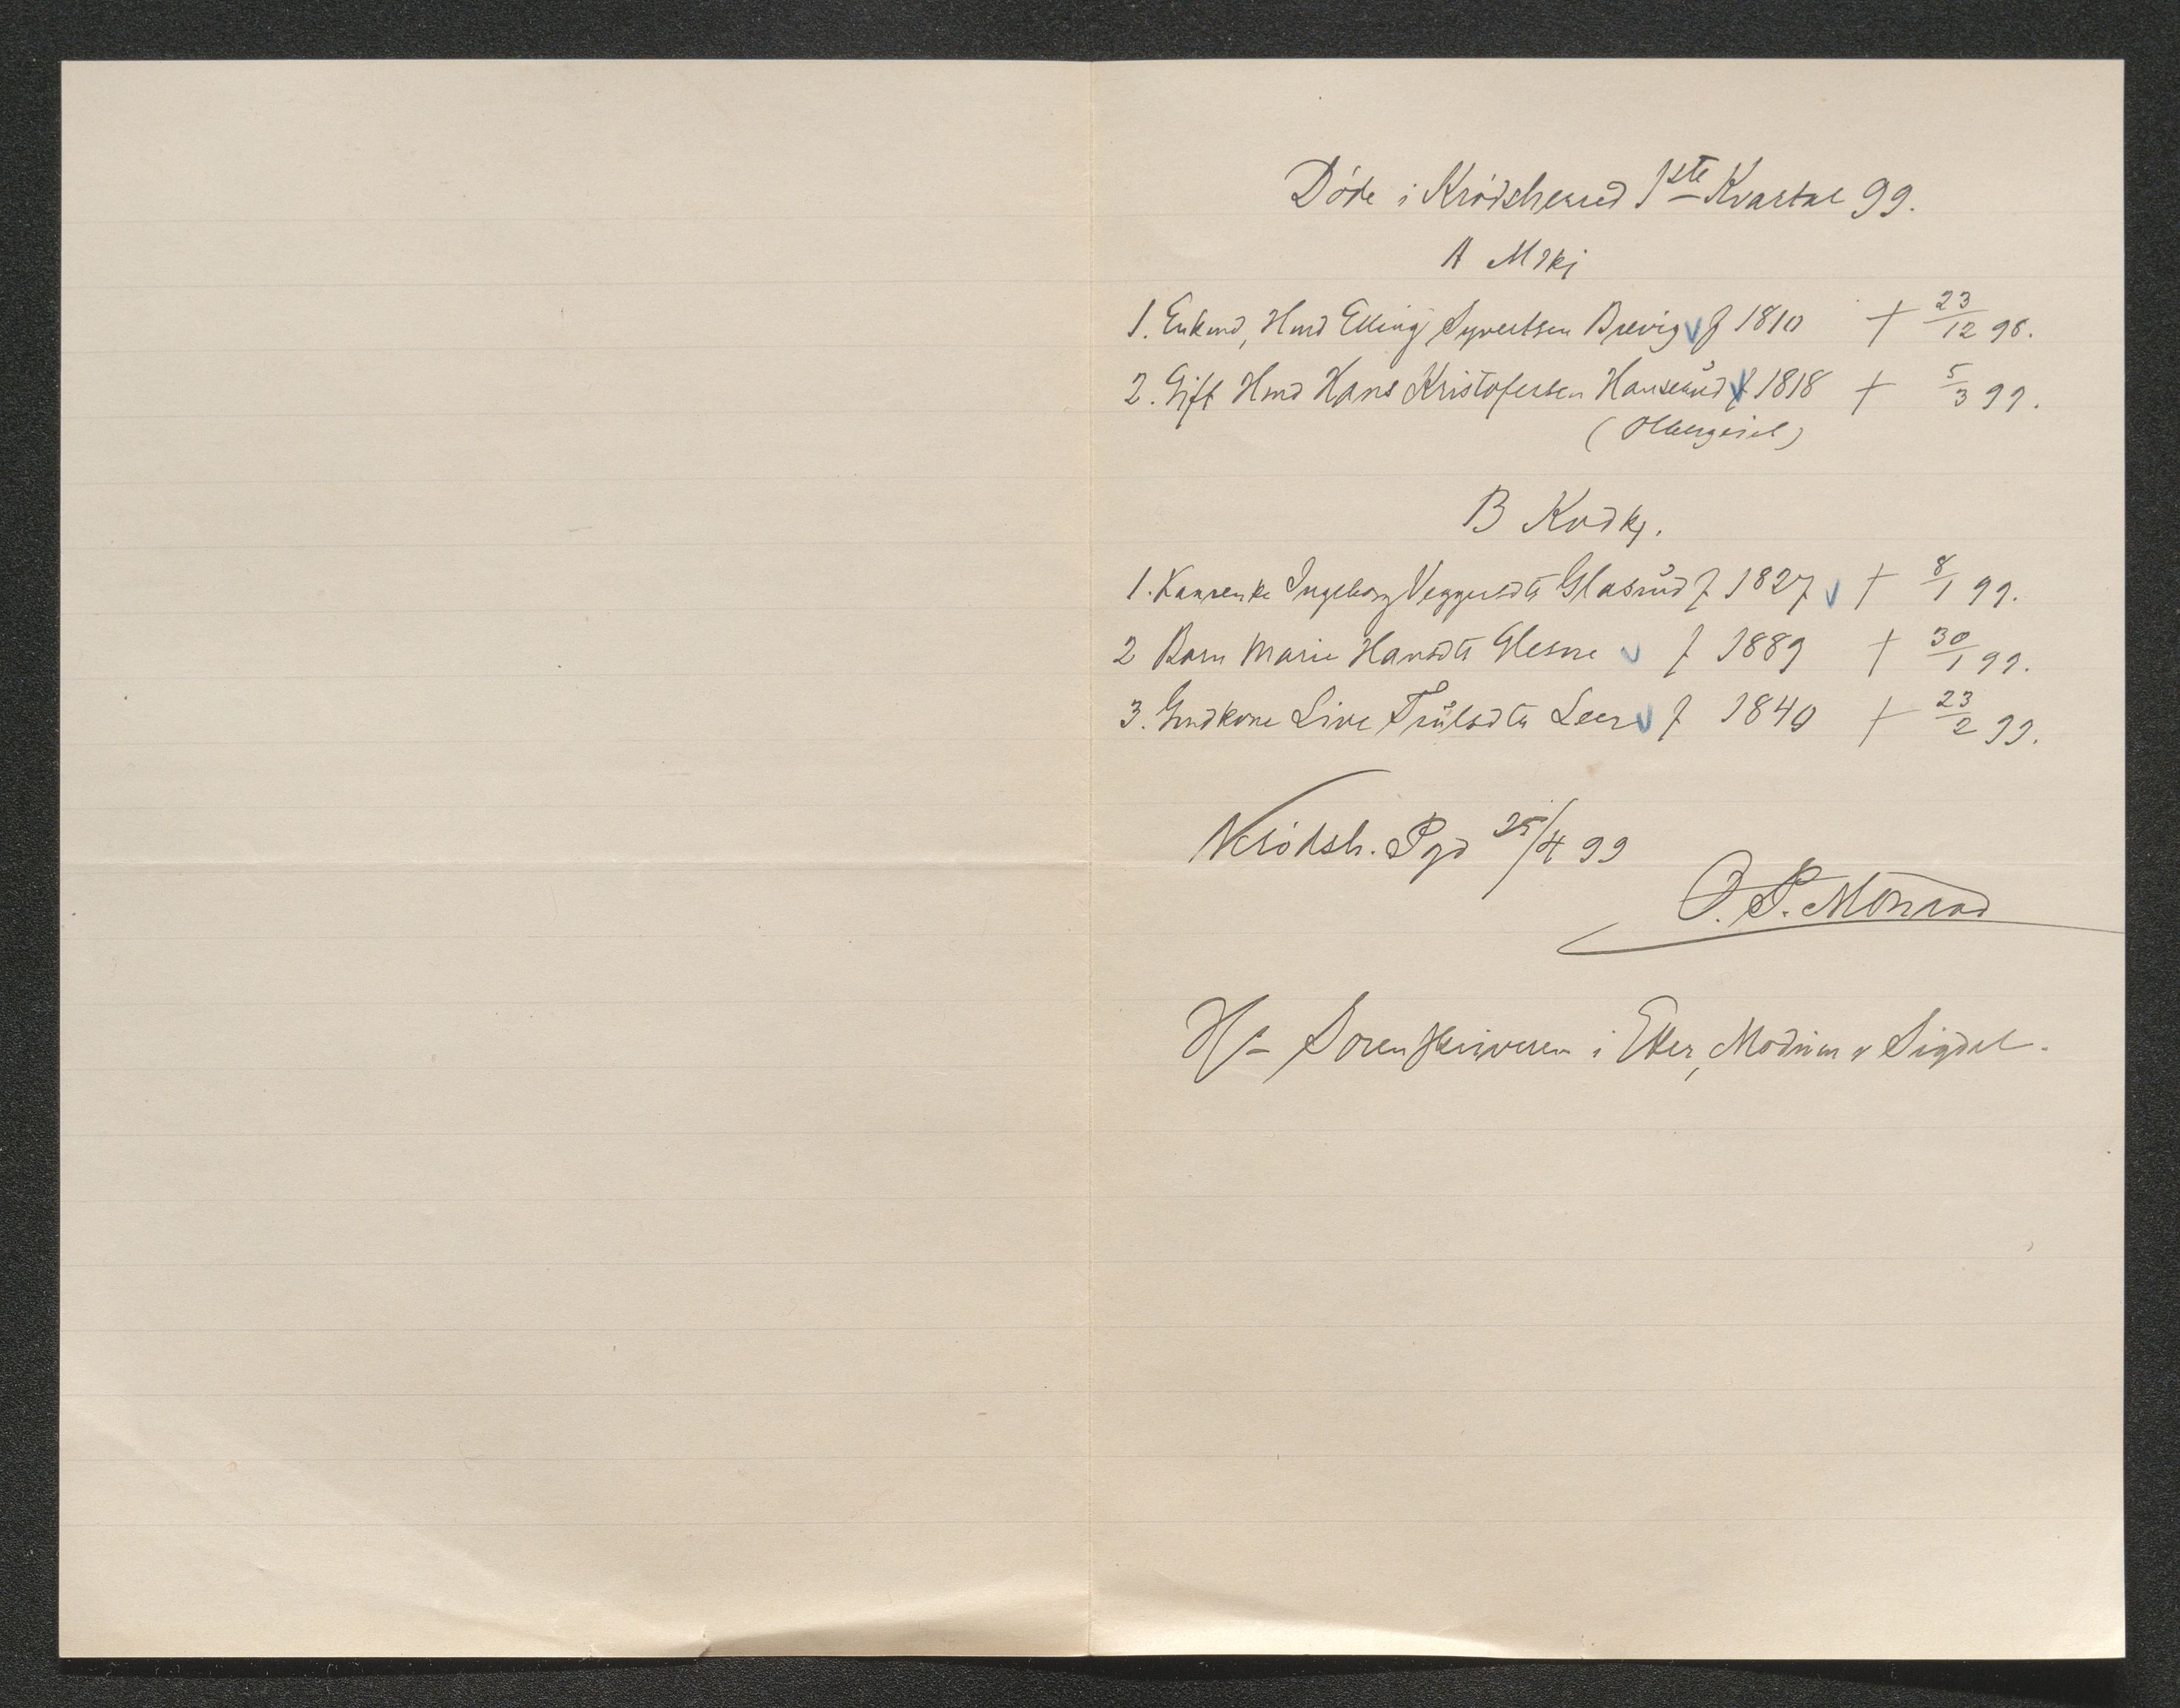 Døde i Krødsherred 1ste Kvartal 99.
A Mkj
1. Enkmd, Hmd Elling Syvertsen Brevig f 1810 + 23/12 98.
2. Gift Hmd Hans Kristofersen Hanserud f 1818 + 5/3 99.
B Kvdkj.
1. Ingeborg Glasrud f 1827 + 8/1 99.
2 Barn Marie Hansdtr Glesne f 1889 + 30/1 99.
3. Gmdkone Live Trulsdtr Leer f 1840 + 23/2 99.
Krødsh. Pgd 25/4 99
O. P. Monrad
Hr Sorenskriveren i Eker, Modum & Sigdal.